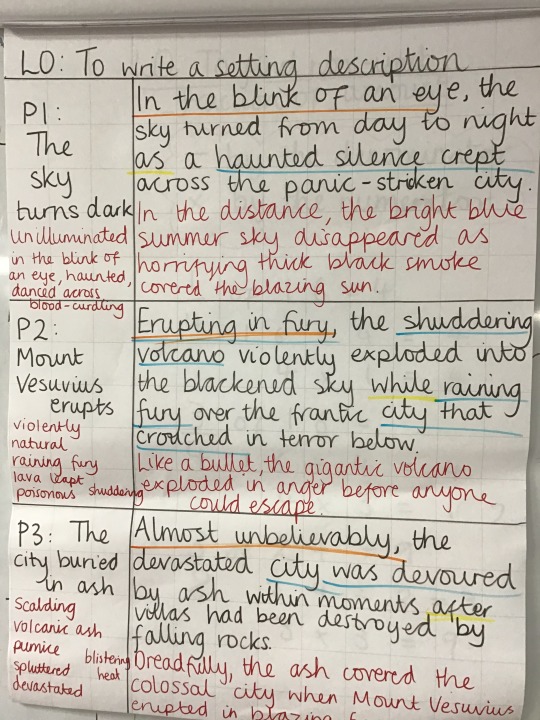 LO: To write a setting description
P1:
The
sky
turns dark
Unilluminated
in the blink of
an eye, haunted,
danced across
blood-curdling
In the blink of an eye, the
sky turned from day to night
as a haunted silence crept
across the panic-stricken city.
In the distance, the bright blue
summer sky disappeared as
horrifying thick black smoke
covered the blazing sun.
P2:
Mount
Vesuvius
erupts
violently
natural
raining fury
lava leapt
poisonous shuddering
Erupting in fury, the shuddering
volcano violently exploded into
the blackened sky while raining
fury over the frantic city that
crouched in terror below.
Like a bullet, the gigantic volcano
exploded in anger before anyone
could escape.
P3: The
city buried
in ash
Scalding
volcanic ash
pumice blistering
spluttered heat
devastated
Almost unbelievably, the
devastated city was devoured
by ash within moments after
villas had been destroyed by
falling rocks.
Dreadfully, the ash covered the
colossal city when Mount Vesuvius
erupted in blazing